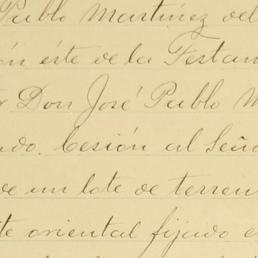 Pablo Martínez del
ón éste de la Testam
r Don José Pablo M
ado. Cesión al Seño
de un lote de terren
te oriental fijado e